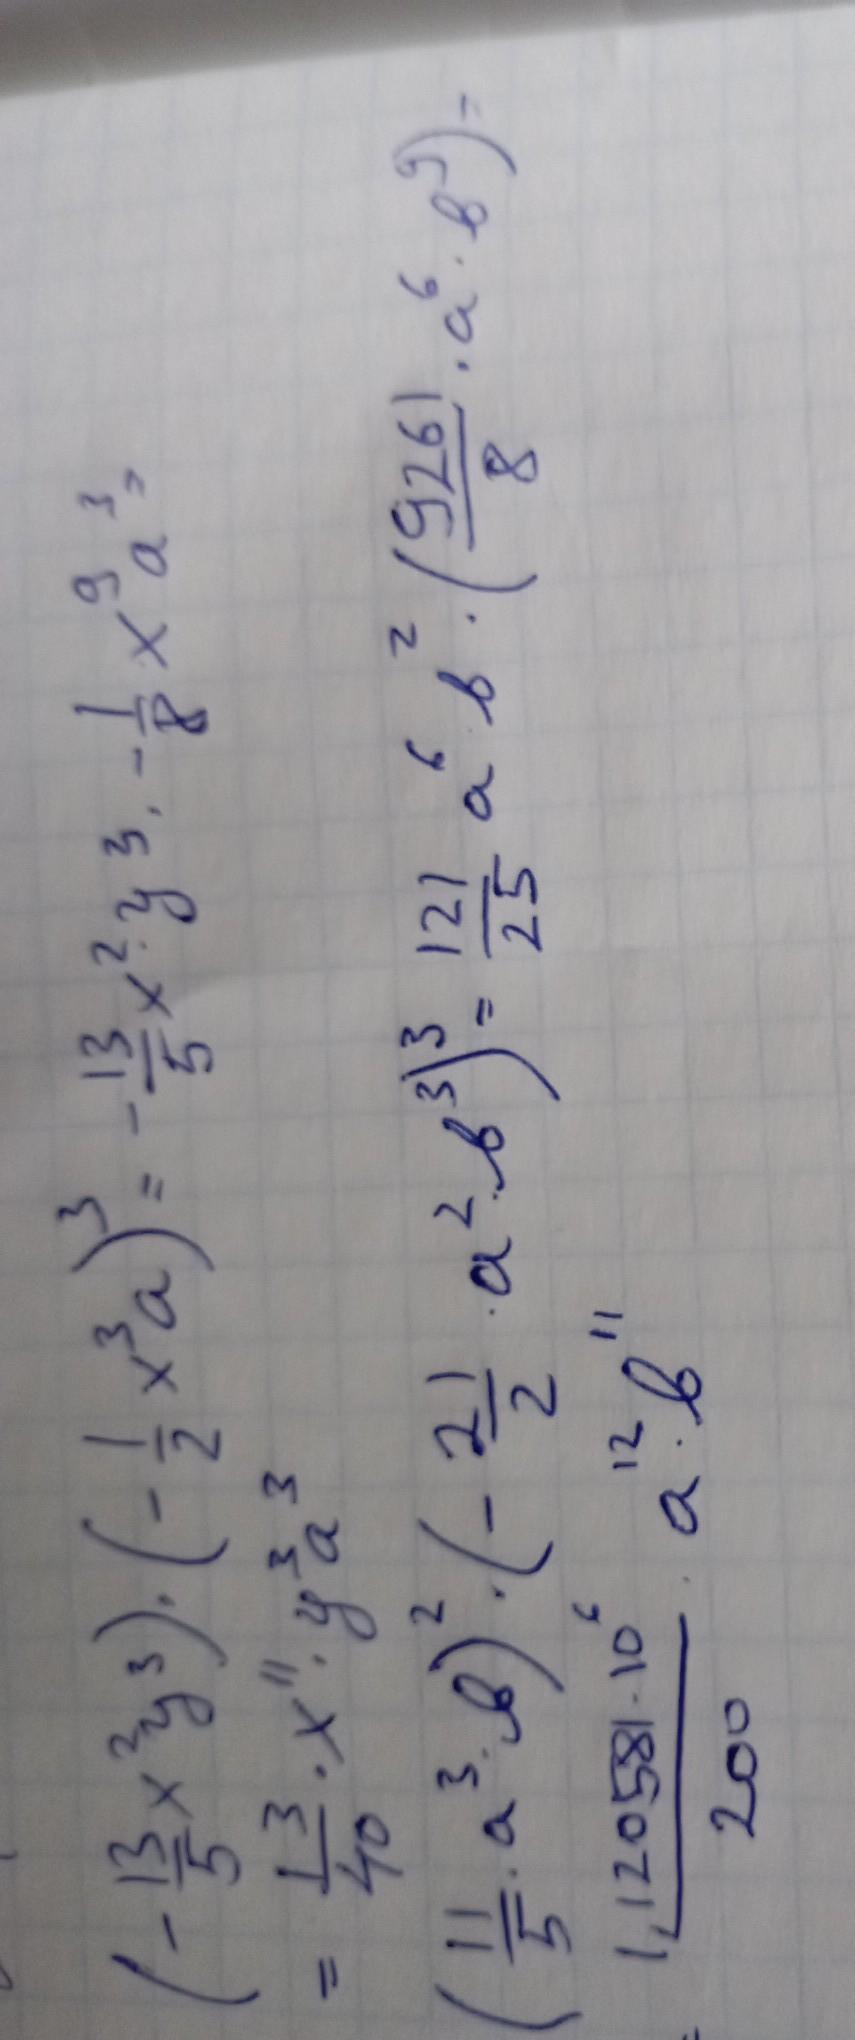 (-13/5 x²y³)·(-1/2 x³a)³ = -13/5 x²·y³·-1/8 x⁹a³=
= 13/40·x¹¹·y³a³
(11/5·a³·b)²·(-21/2·a²·b³)³= 121/25 a⁶·b²·(9261/8·a⁶·b⁹)=
= 1,120581·10⁶/200·a¹²·b¹¹